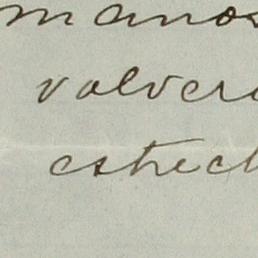 manos
volver
estrech